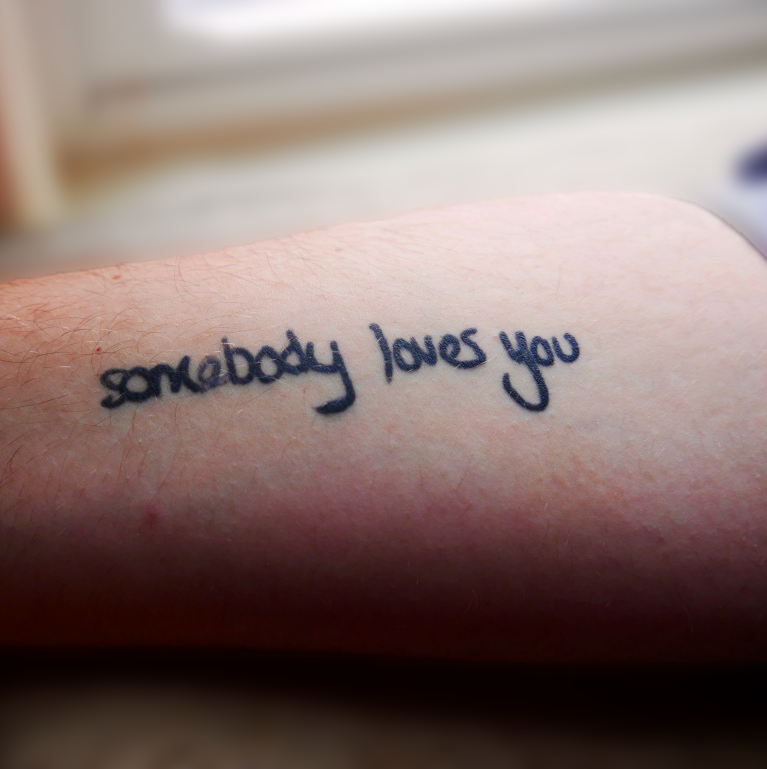 somebody loves you